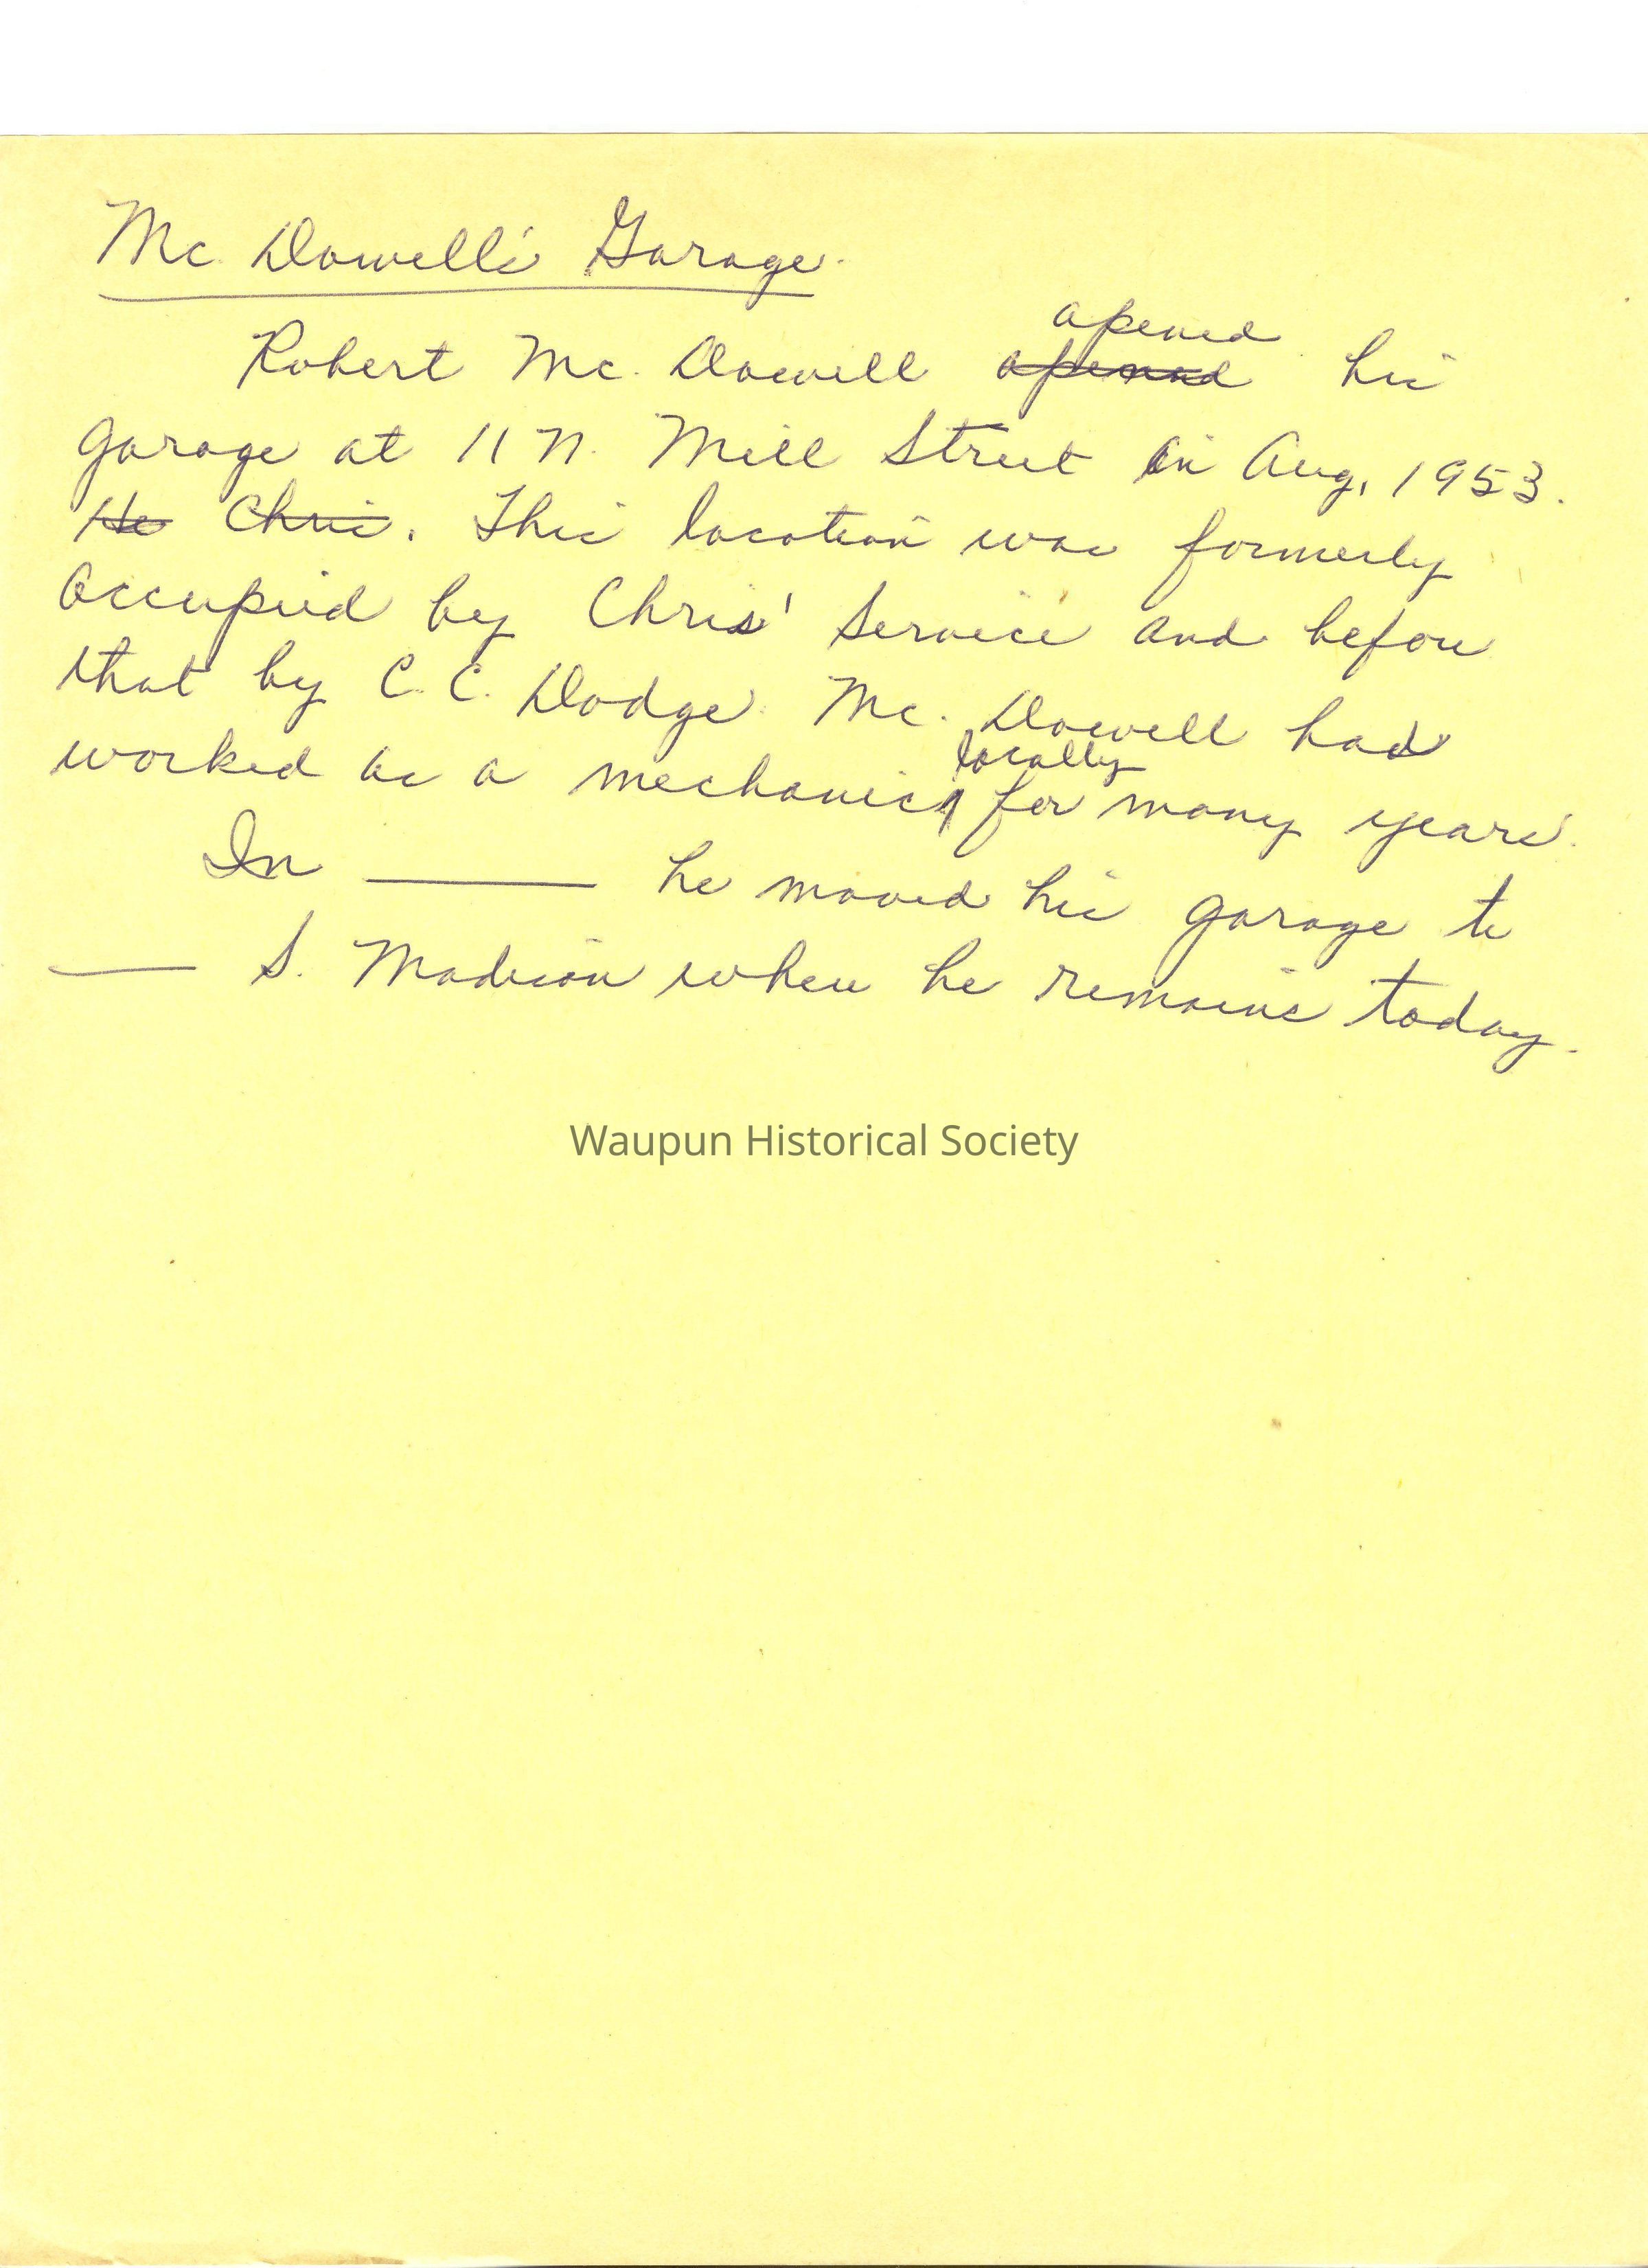 Mc Dowell's Garage.
opened
Robert Mc. Dowell opened his
garage at 11 N. Mill Street in Aug, 1953.
He Chris. This location was formerly
occupied by Chris' Service and before
that by C. C. Dodge. Mc. Dowell had
locally
worked as a mechanic for many years.
In ____ he moved his garage to
____ S. Madison where he remains today.
Waupun Historical Society